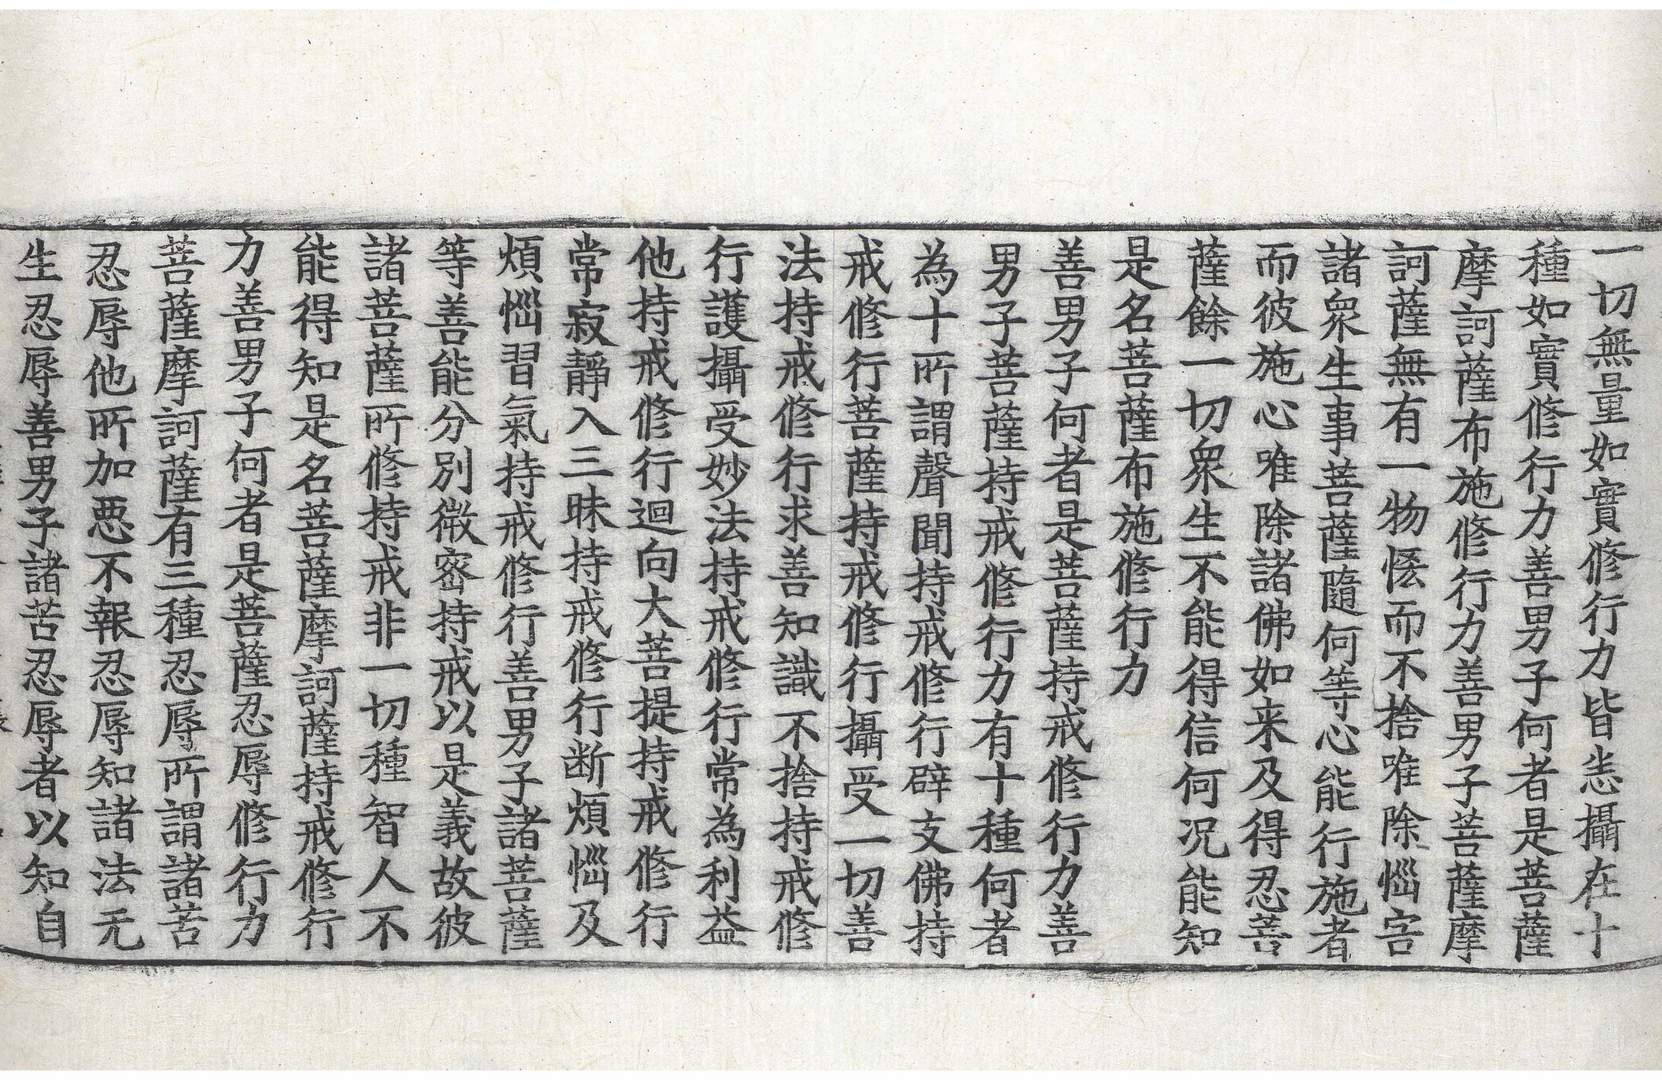 一切無量如實修行力皆恙攝在十
種如實修行力善男子何者是菩薩
摩訶薩布施修行力善男子菩薩摩
訶薩無有一物悋而不捨唯除惱害
諸衆生事菩薩隨何等心能行施者
而彼施心唯除諸佛如来及得忍菩
薩餘一切衆生不能得信何况能知
是名菩薩布施修行力
善男子何者是菩薩持戒修行力善
男子菩薩持戒修行力有十種何者
為十所謂聲聞持戒修行辟支佛持
戒修行菩薩持戒修行攝受一切善
法持戒修行求善知識不捨持戒修
行護攝受妙法持戒修行常為利益
他持戒修行迴向大菩提持戒修行
常寂靜入三昧持戒修行断煩惱及
煩惱習氣持戒修行善男子諸菩薩
等善能分別微密持戒以是義故彼
諸菩薩所修持戒非一切種智人不
能得知是名菩薩摩訶薩持戒修行
力善男子何者是菩薩忍辱修行力
菩薩摩訶薩有三種忍辱所謂諸苦
忍辱他所加惡不報忍辱知諸法无
生忍辱善男子諸苦忍辱者以知自